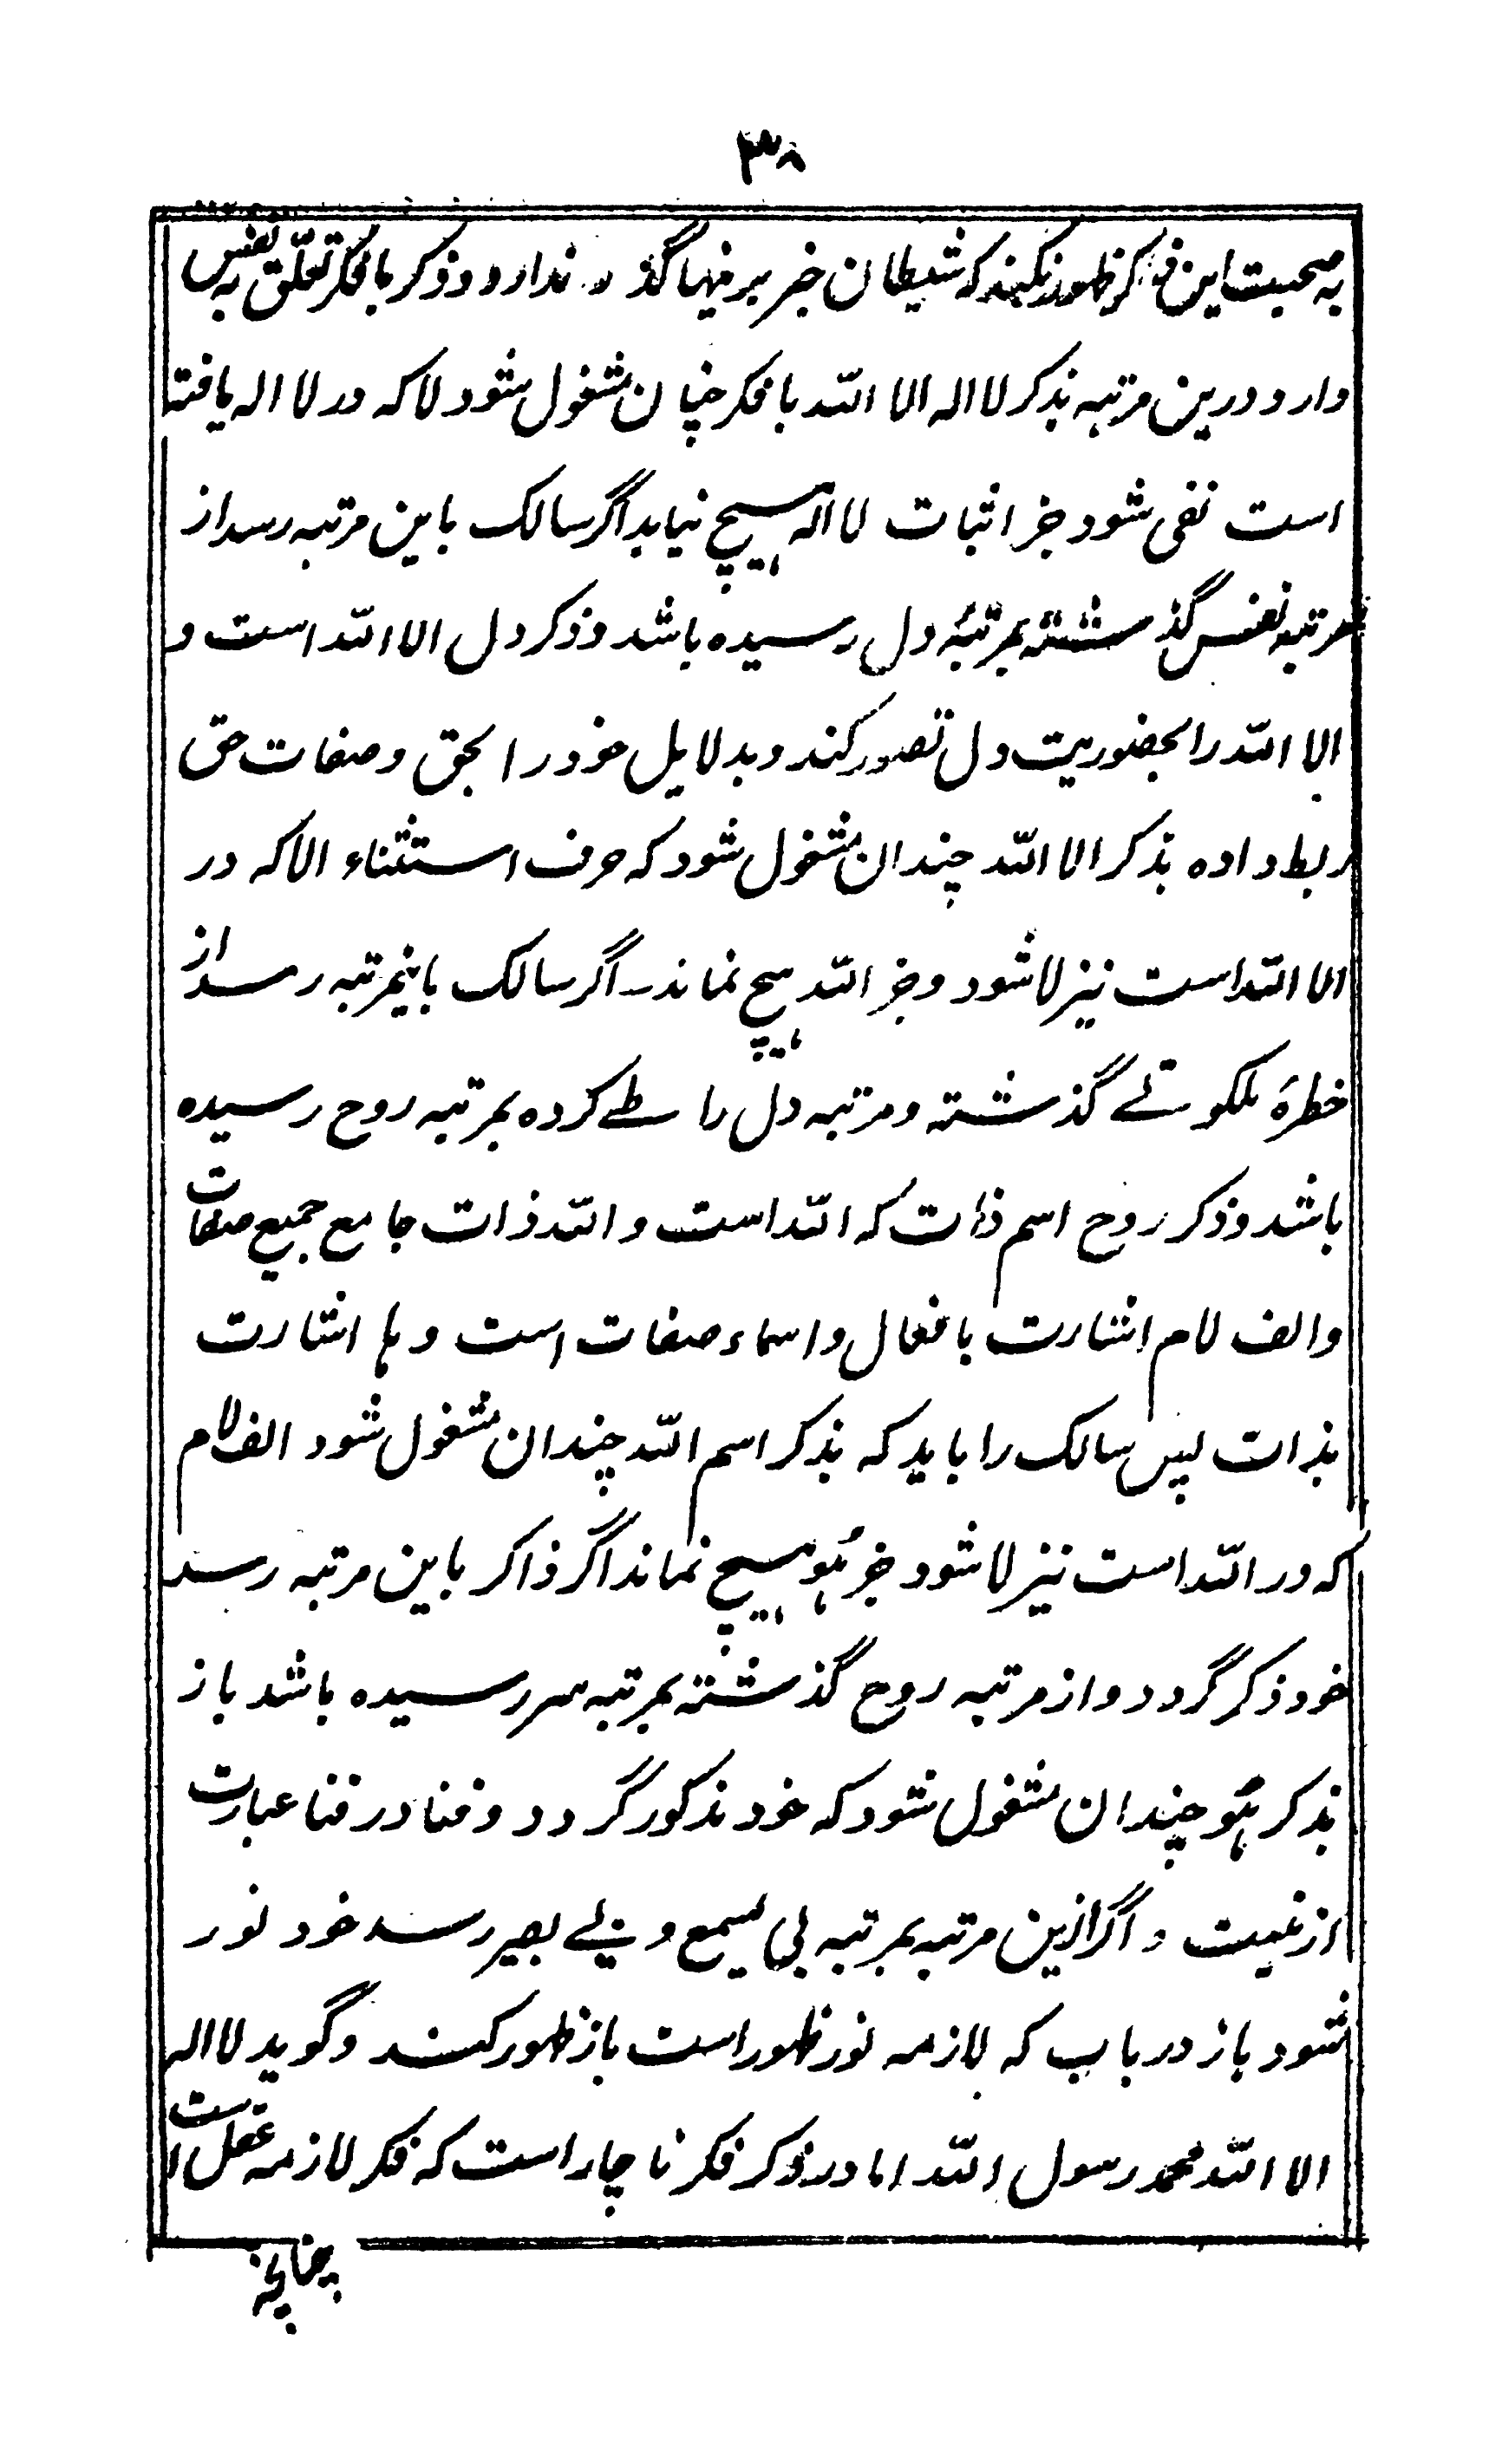 ۳۸
به صحبت این ذکر ظهور نکند که شیطان جز بر فیها گذر ندارد و ذکر با فکر تعلق به نفس
دارد و درین مرتبه بذکر لا اله الا الله با فکر چنان مشغول شود لا که در لا اله یافتا
است نفی شود جز اثبات لا اله هیچ نیابد اگر سالک باین مرتبه رسد از
مرتبه نفس گذشته بمرتبهٔ دل رسیده باشد و ذکر دل الا الله است و
الا الله را بحضوریت دل تصور کند و بدلایل خود را بحق و صفات حق
ربط داده بذکر الا الله چندان مشغول شود که حرف استثناء الا که در
الا الله است نیز لا شود و جز الله هیچ نماند اگر سالک باینمرتبه رسد از
خطرهٔ ملکوتے گذشته و مرتبه دل را طے کرده بمرتبه روح رسیده
باشد و ذکر روح اسم ذات که الله است و الله ذات جامع جمیع صفات
و الف لام اشارت بافعال و اسماء صفات است و ها اشارت
بذات پس سالک را باید که بذکر اسم الله چندان مشغول شود الف لام
که در الله است نیز لا شود جز هُو هیچ نماند اگر ذاکر باین مرتبه رسد
خود ذکر گردد و از مرتبه روح گذشته بمرتبه سر رسیده باشد باز
بذکر هُو چندان مشغول شود که خود مذکور گردد و فنا در فنا عبارت
از غیبت و اگر ازین مرتبه بمرتبه بی یسمع و بے یبصر رسد خود نور
شود باز در باب که لازمه نور ظهور است باز ظهور کند و گوید لا اله
الا الله محمد رسول الله اما در ذکر فکر ناچار است که فکر لازمه عقل است
چنانچہ